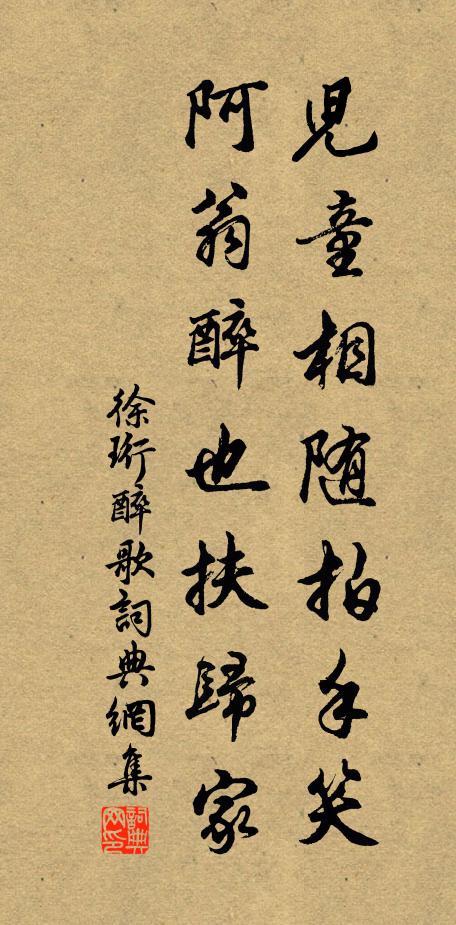 兒童相随拍手笑
阿翁醉也扶歸家
徐珩醉歌詞典網集
詞典网印